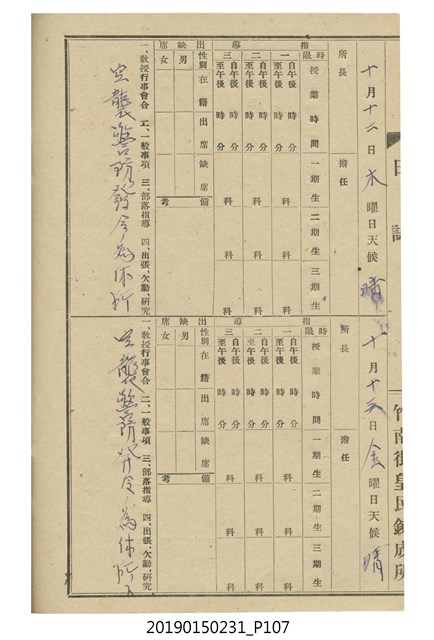 日誌
竹南街皇民鍊成所
十月十二日木曜日天候 晴
所長 擔任
指導
時限 授業時間 一期生 二期生 三期生
一 自午前後 時分 至午前後 時分 科 科 科
二 自午前後 時分 至午前後 時分 科 科 科
三 自午前後 時分 至午前後 時分 科 科 科
出缺席
性別 在籍 出席 缺席 備考
男
女
一、教授行事會合 二、一般事項 三、部落指導 四、出張、欠勤、研究
空襲警防發令為休所
十月十三日金曜日天候 晴
所長 擔任
指導
時限 授業時間 一期生 二期生 三期生
一 自午後 時分 至午後 時分 科 科 科
二 自午後 時分 至午後 時分 科 科 科
三 自午後 時分 至午後 時分 科 科 科
出缺席
性別 在籍 出席 缺席 備考
男
女
一、教授行事會合 二、一般事項 三、部落指導 四、出張、欠勤、研究
空襲警防發令為休所
20190150231_P107